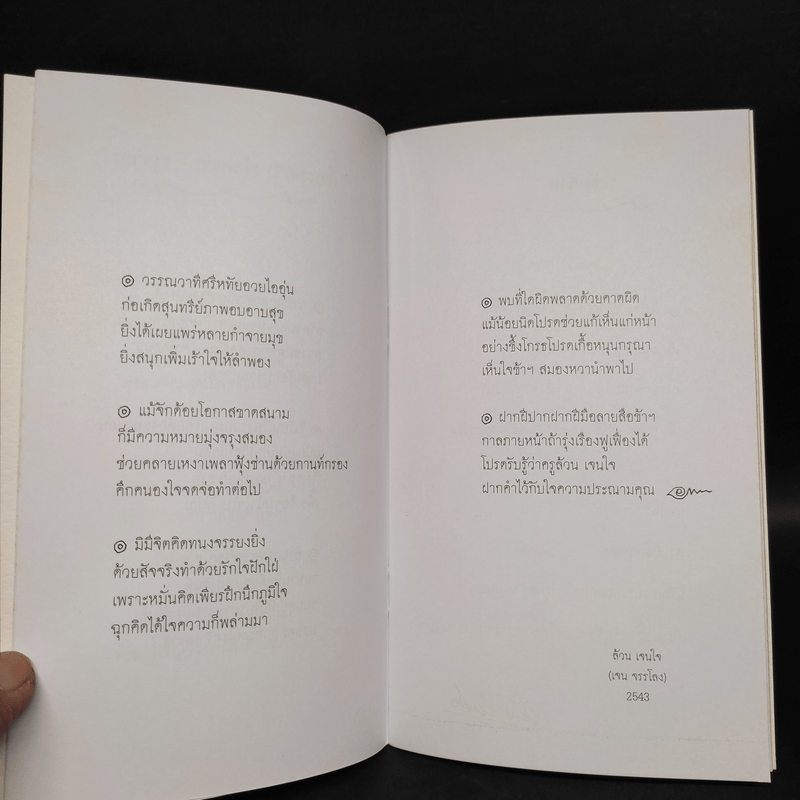 ๏ วรรณวาทีศรีหทัยอวยไออุ่น
ก่อเกิดสุนทรีย์ภาพอบอาบสุข
ยิ่งได้เผยแพร่หลายกำจายมุข
ยิ่งสนุกเพิ่มเร้าใจให้ลำพอง
๏ แม้จักด้อยโอกาสขาดสนาม
ก็มีความหมายมุ่งจรุงสมอง
ช่วยคลายเหงาเพลาฟุ้งซ่านด้วยกานท์กรอง
คึกคนองใจจดจ่อทำต่อไป
๏ มิมีจิตคิดทนงจรรยงยิ่ง
ด้วยสัจจริงทำด้วยรักใจฝักใฝ่
เพราะหมั่นคิดเพียรฝึกนึกภูมิใจ
ฉุกคิดได้ใจความก็พล่ามมา
๏ พบที่ใดผิดพลาดด้วยคาดผิด
แม้น้อยนิดโปรดช่วยแก้เห็นแก่หน้า
อย่างขึ้งโกรธโปรดเกื้อหนุนกรุณา
เห็นใจข้าฯ สมองหวานำพาไป
๏ ฝากฝีปากฝากฝีมือลายสือข้าฯ
กาลภายหน้าถ้ารุ่งเรืองฟูเฟื่องได้
โปรดรับรู้ว่าครูล้วน เจนใจ
ฝากคำไว้กับใจความประณามคุณ
ล้วน เจนใจ
(เจน จรรโลง)
2543